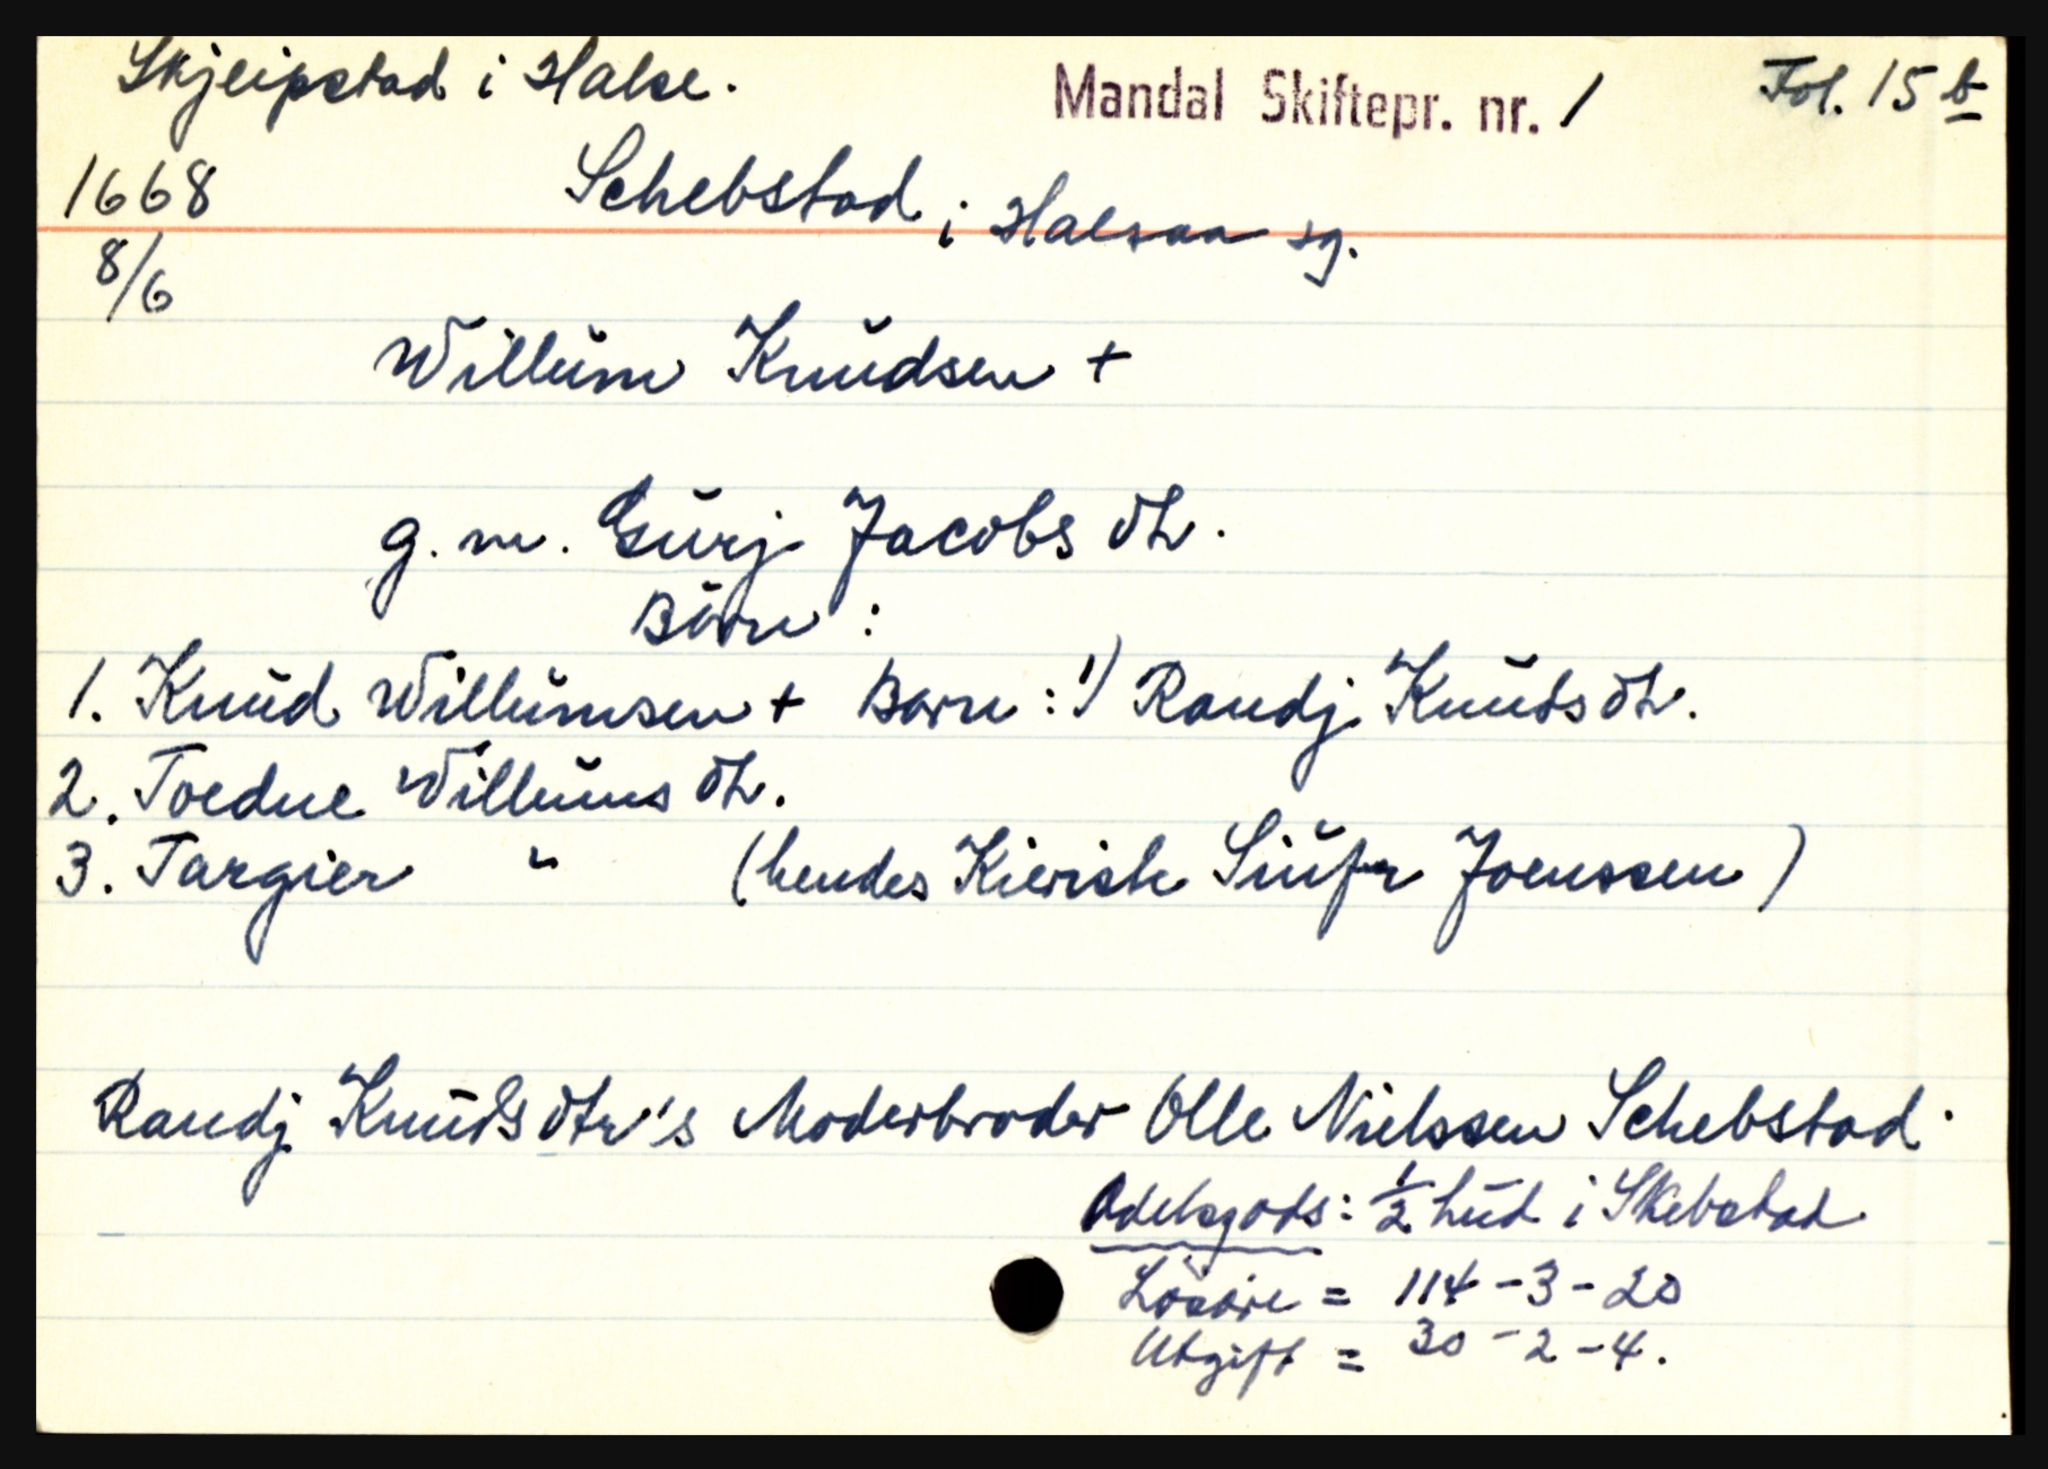 Skjeipstad i Halse.
Mandal Skiftepr. nr. 1
Fol. 15 b
1668
Schebstad i Halsaa sg.
8/6
Willŭm Knŭdsen +
g. m. Gŭrj Jacobs dt.
Börn :
1. Knŭd Willŭmsen + Barn : 1) Randj Knŭds dt.
2. Toedne Willŭms dt.
3. Targier " (hendes Kierist Siŭfr Joenssen)
Randj Knŭds dtr's Moderbroder Olle Nielssen Schebstad.
Odelsgods: 1/2 hŭd i Skebstad
Lösöre = 114 - 3 - 20
Utgift = 30 - 2 - 4.